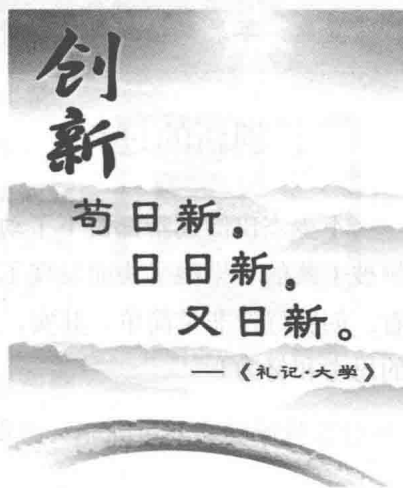 创
新
苟日新,
日日新,
又日新。
——《礼记·大学》